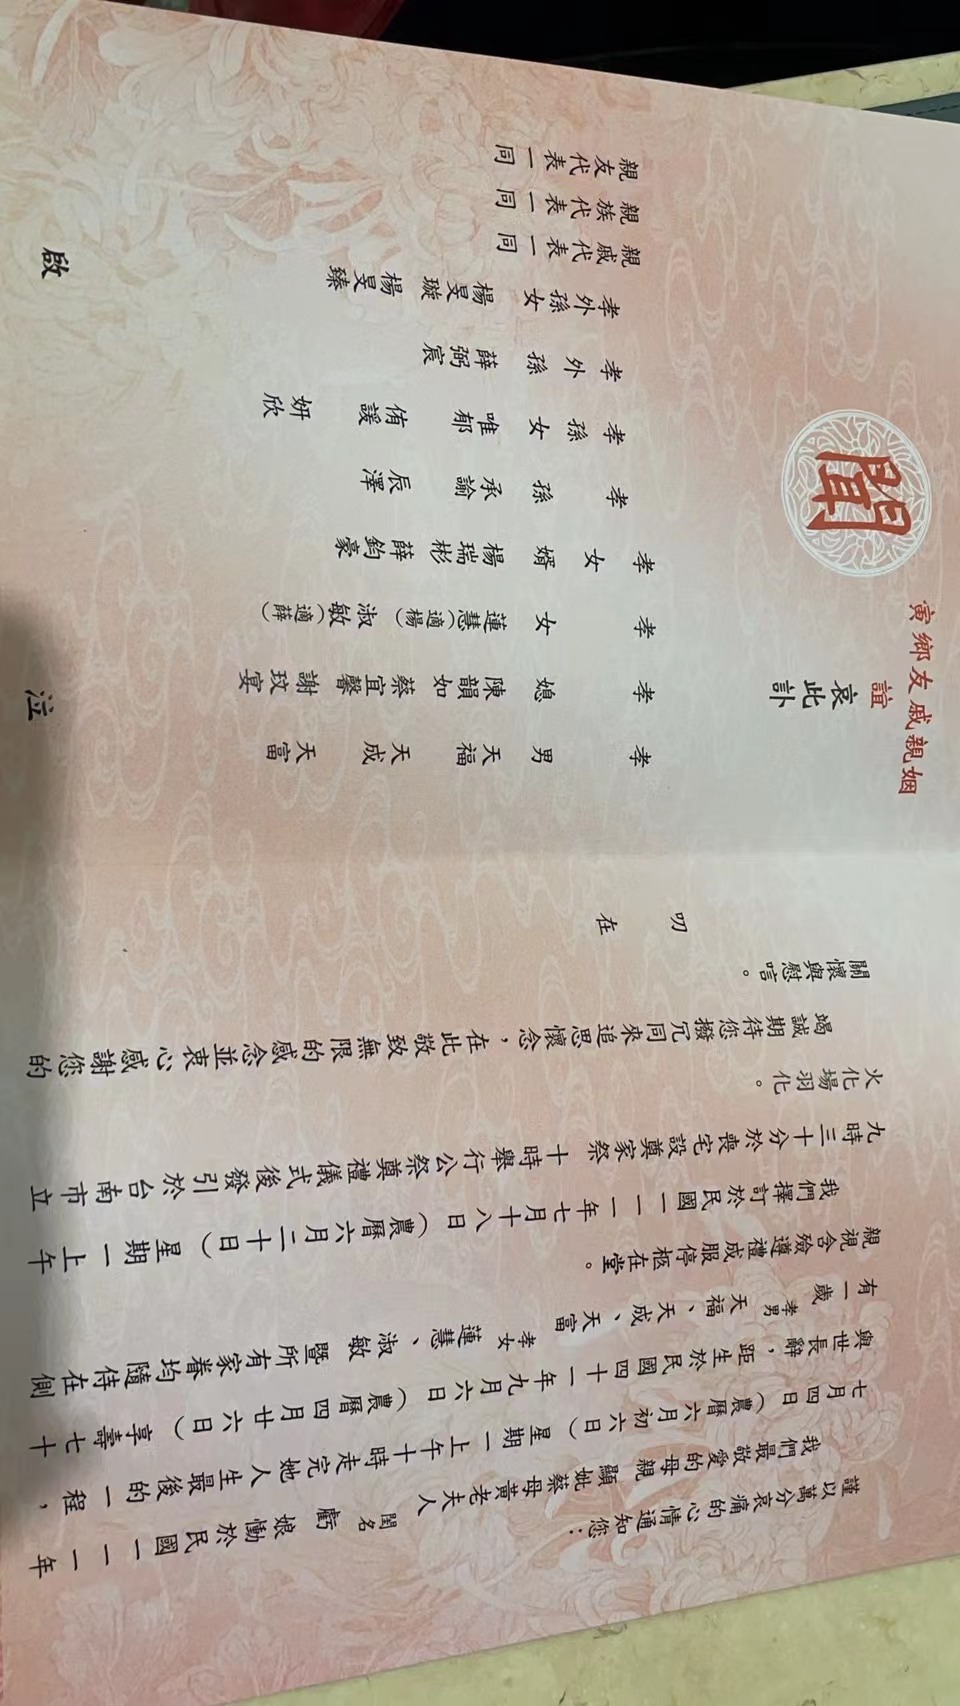 謹以萬分哀痛的心情通知您：
我們最敬愛的母親 顯妣蔡母黃老夫人 閨名 虧娘 慟於民國一一一年
七月四日（農曆六月初六日）星期一上午十時走完她人生最後的一程，
與世長辭，距生於民國四十一年九月六日（農曆四月廿六日）享壽七十
有一歲 孝男 天福、天成、天富 孝女 蓮慧、淑敏 暨所有家眷均隨侍在側
親視含殮遵禮成服停柩在堂。
我們擇訂於民國一一一年七月十八日（農曆六月二十日）星期一上午
九時三十分於喪宅設奠家祭 十時舉行公祭奠禮儀式後發引於台南市立
火化場羽化。
竭誠期待您撥冗同來追思懷念，在此敬致無限的感念並衷心感謝您的
關懷與慰唁。
叨
在
寅鄉友戚親姻
誼
哀此訃
聞
孝男 天福 天成 天富
孝媳 陳韻如 蔡宜馨 謝玟宴
孝女 蓮慧（適楊） 淑敏（適薛）
孝女婿 楊瑞彬 薛鈞豪
孝孫 承諭 辰澤
孝孫女 唯郁 侑諼 妍欣
孝外孫 薛弼宸
孝外孫女 楊旻璇 楊旻臻
親戚代表一同
親族代表一同
親友代表一同
泣
啟